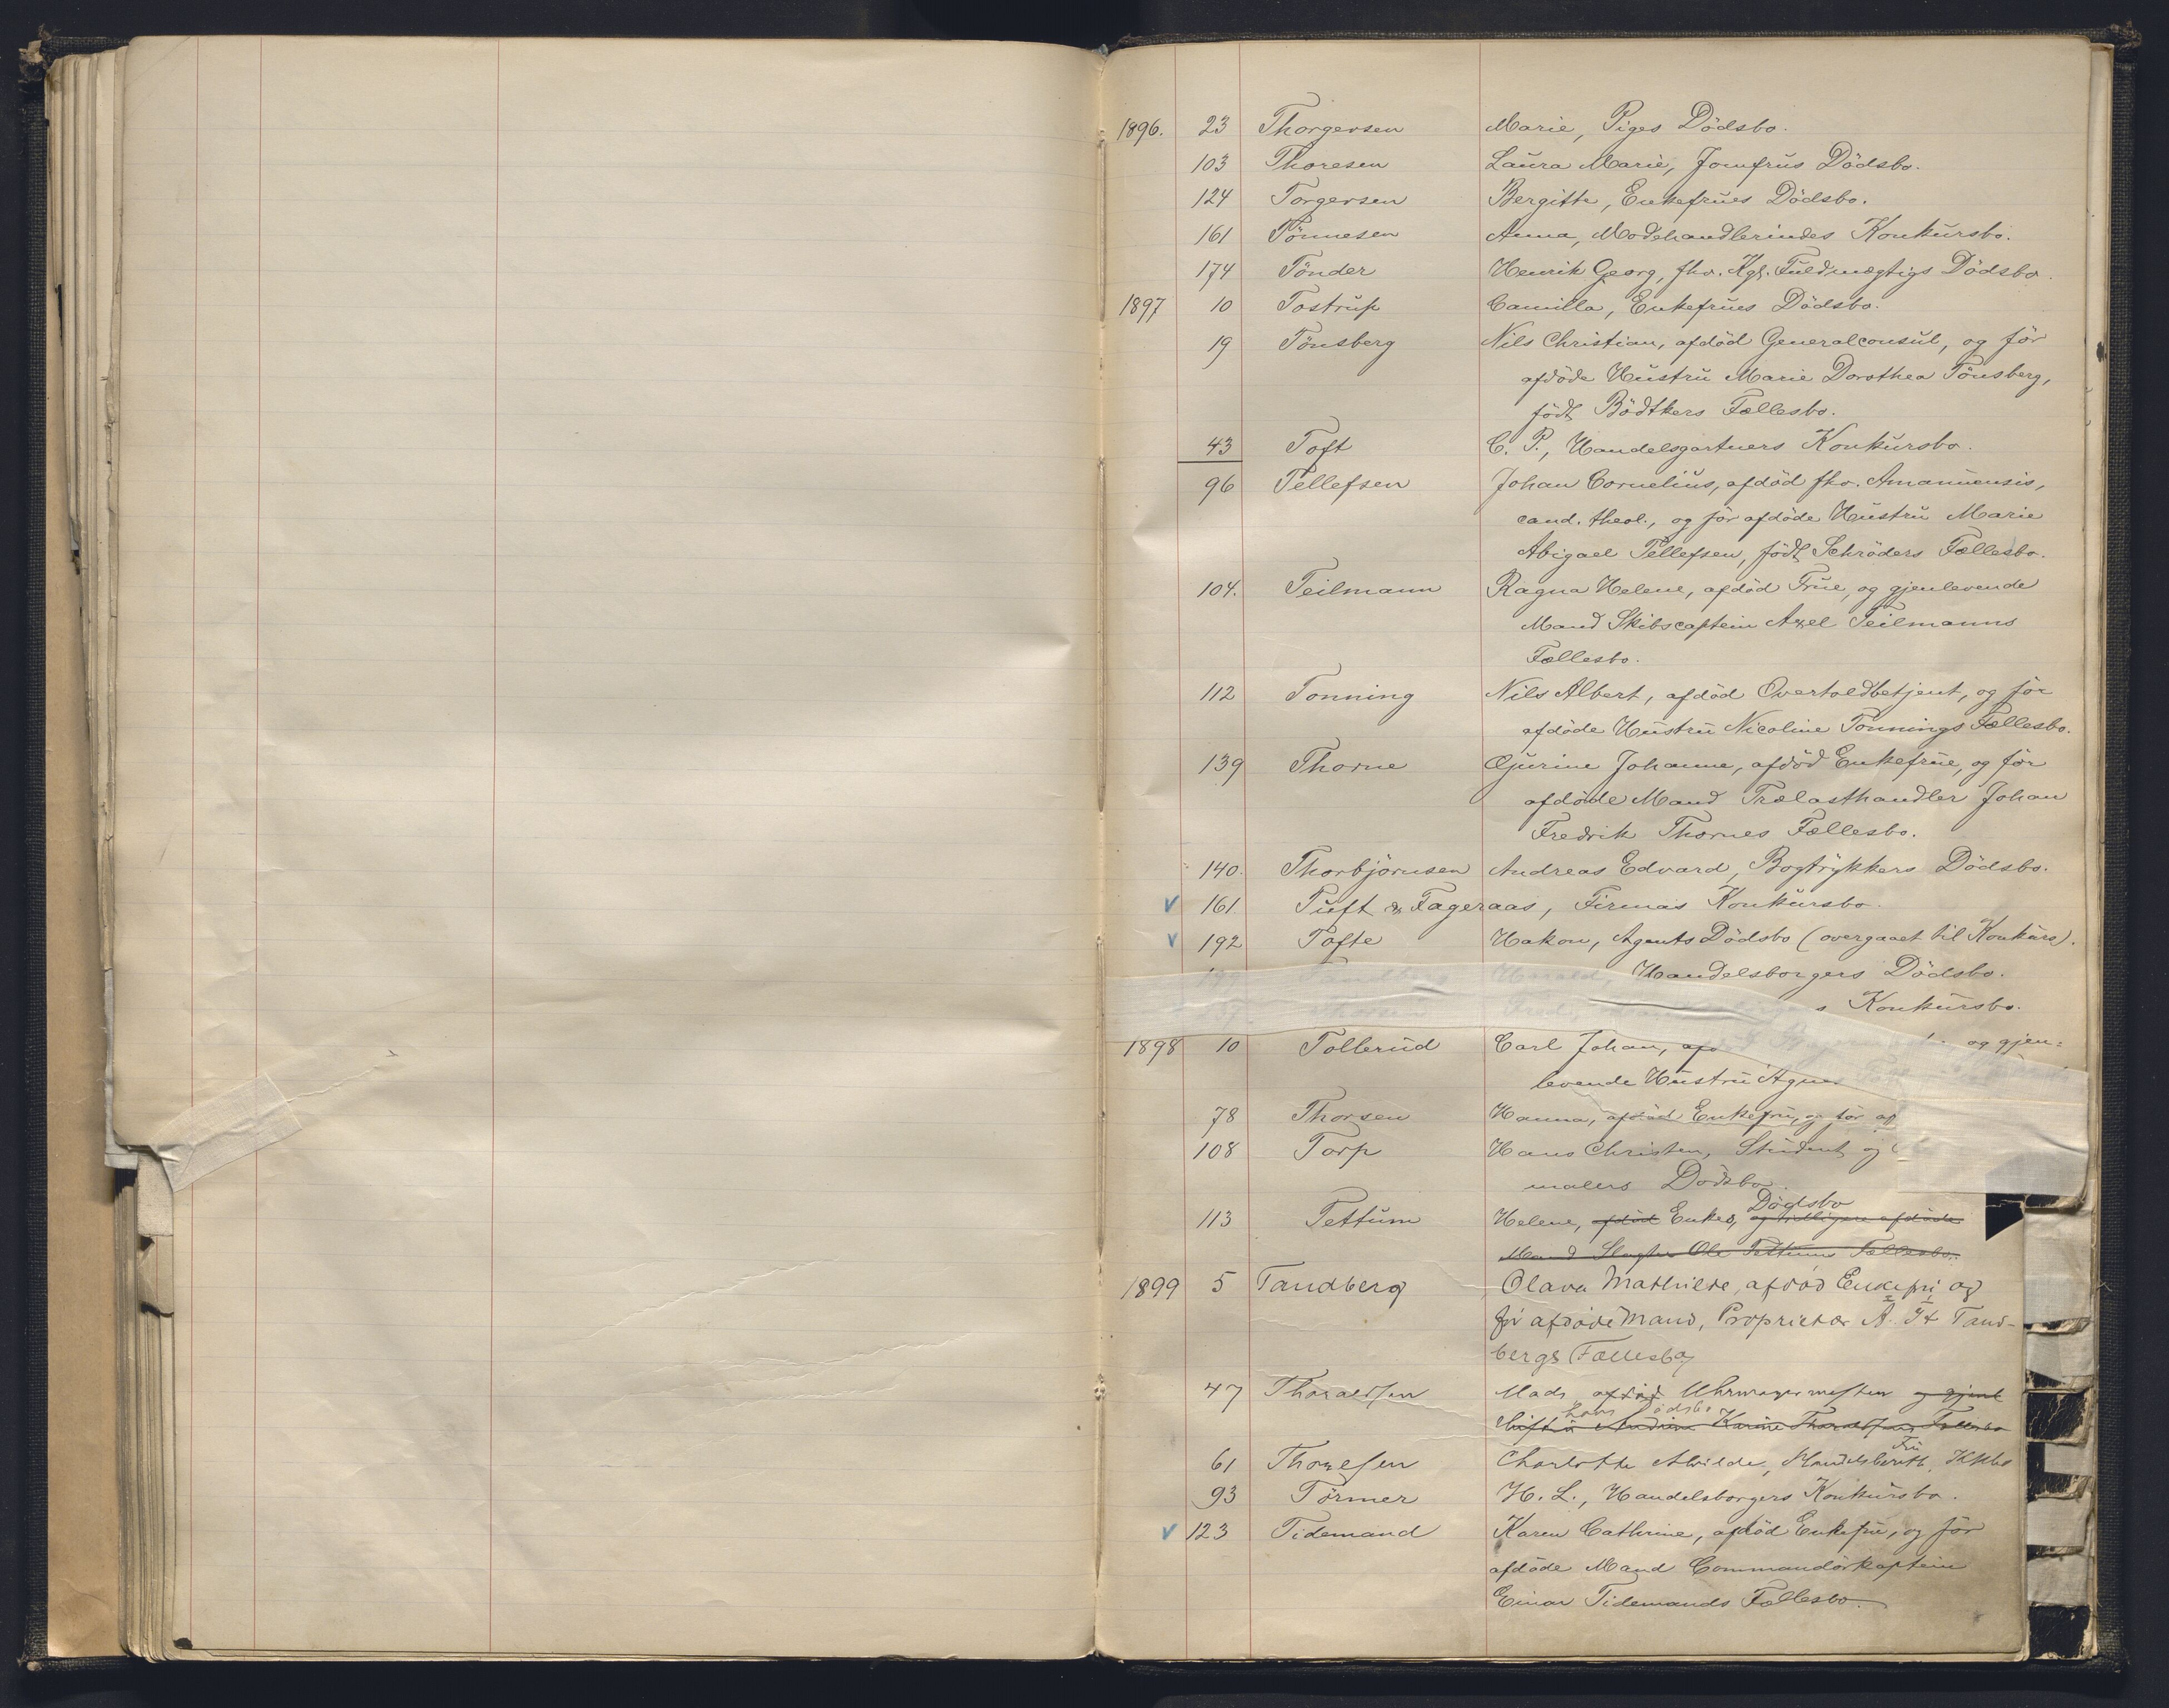 1896. 23 Thorgersen Marie, Piges Dödsbo.
103 Thoresen Laura Marie, Jomfrus Dödsbo.
124 Torgersen Bergitte, Enkefrues Dödsbo.
161 Tönnesen Anna, Modehandlerindes Konkursbo.
174 Tönder Henrik Georg, fhv. Kgl. Fuldmægtigs Dödsbo.
1897 10 Tostrup Camilla, Enkefrues Dödsbo.
19 Tönsberg Nils Christian, afdöd Generalconsul, og för
afdöde Hustru Marie Dorothea Tönsberg,
födt Bödtkers Fællesbo.
43 Toft C. P., Handelsgartners Konkursbo.
96 Tellefsen Johan Cornelius, afdöd fhv. Amanuensis,
cand. theol., og för afdöde Hustru Marie
Abigael Tellefsen, födt Schröders Fællesbo.
104. Teilmann Ragna Helene, afdöd Frue, og gjenlevende
Mand Skibscaptein Axel Teilmanns
Fællesbo.
112 Tonning Nils Albert, afdöd Overtoldbetjent, og för
afdöde Hustru Nicoline Tonnings Fællesbo.
139 Thorne Gjurine Johanne, afdöd Enkefrue, og för
afdöde Mand Trælasthandler Johan
Fredrik Thornes Fællesbo.
140. Thorbjörnsen Andreas Edvard, Bogtrykkers Dödsbo.
V 161 Tuft & Fageraas, Firmas Konkursbo.
V 192 Tofte Hakon, Agents Dödsbo (overgaaet til Konkurs).
199 Tandberg Harald, Handelsborgers Dödsbo.
s Konkursbo.
1898 10 Tollerud Carl Johan, og gjen=
levende Hustru
78 Thorsen Hanna, afdöd Enkefru, og för
108 Torp Hans Christen, Student og
malers Dödsbo.
Dödsbo
113 Tettum Helene, afdöd Enkes, og tidligere afdöde
Mand Slagter Ole Tettums Fællesbo.
1899 5 Tandberg Olava Mathilde, afdöd Enkefru og
för afdöde Mand, Proprietær A. T. Tand-
bergs Fællesbo
47 Thoraldsen Mads afdöd Uhrmagermester og gjenl
Dödsbo
Hustru Karine Thoraldsens Fællesbo
Fru
61 Thoresen Charlotte Alvilde, Handelsberett. KKbo
93 Törmer H. L., Handelsborgers Konkursbo.
V 123 Tidemand Karen Cathrine, afdöd Enkefrue, og för
afdöde Mand Commandörkaptein
Einar Tidemands Fællesbo.